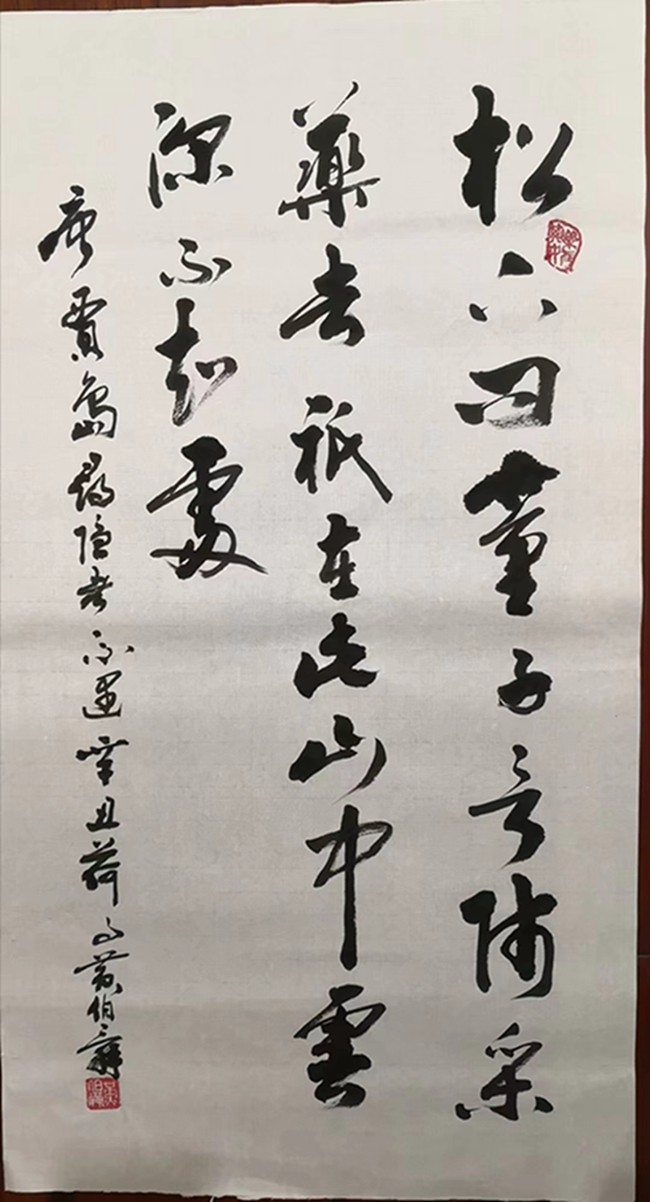 松下问童子言师采
药去祇在此山中雲
深不知處
唐賈島尋隐者不遇辛丑荷月黄伯